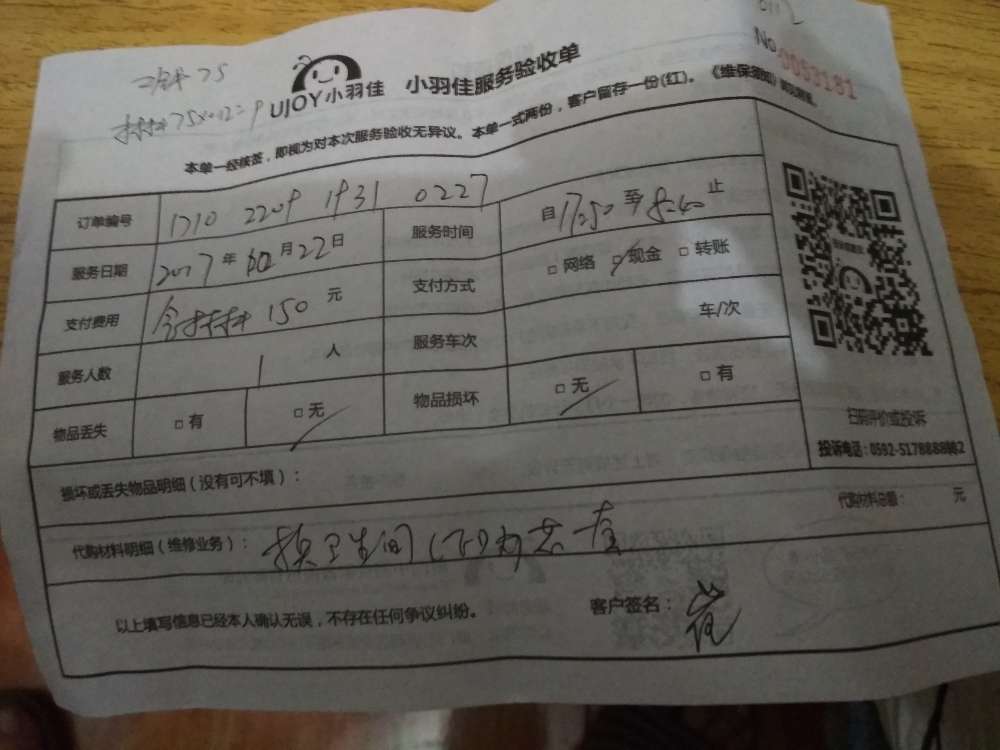 工钱75
材料75×0.12=9
0112
UJOY小羽佳 小羽佳服务验收单
No.0053181
本单一经核签，即视为对本次服务验收无异议。本单一式两份，客户留存一份(红)。《维保须知》
订单编号 1710 2209 1931 0227 服务时间 自17:50至18:40止
服务日期 2017年10月22日 支付方式 □网络 □现金 □转账
支付费用 含材料150元 服务车次 车/次
服务人数 1人
物品丢失 □有 □无 物品损坏 □无 □有
扫码评价或投诉
投诉电话：0592-5178888
损坏或丢失物品明细（没有可不填）：
代购材料明细（维修业务）： 换卫生间 代购材料总额： 元
以上填写信息已经本人确认无误，不存在任何争议纠纷。 客户签名：